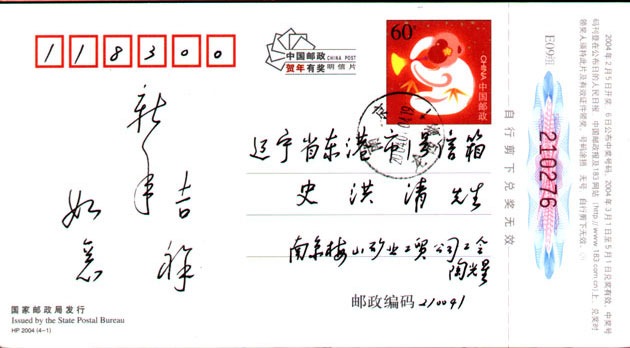 118300
中国邮政 CHINA POST
贺年有奖 明信片
60分
CHINA 中国邮政
新年
吉祥
如意
辽宁省东港市 信箱
史洪清 先生
南京梅山矿业工贸公司工会
陶光星
邮政编码 210041
国家邮政局发行
Issued by the State Postal Bureau
HP 2004 (4-1)
自行剪下兑奖无效
E09组
210276
2004年2月5日开奖，6日公布中奖号码。2004年3月1日至5月1日兑奖有效。中奖号
码刊登在公布日的人民日报、中国邮政报及183网站（http://www.183.com.cn）上。兑奖时
领奖人须持此片及有效证件领奖。号码涂挖 无号 自行剪下无效。